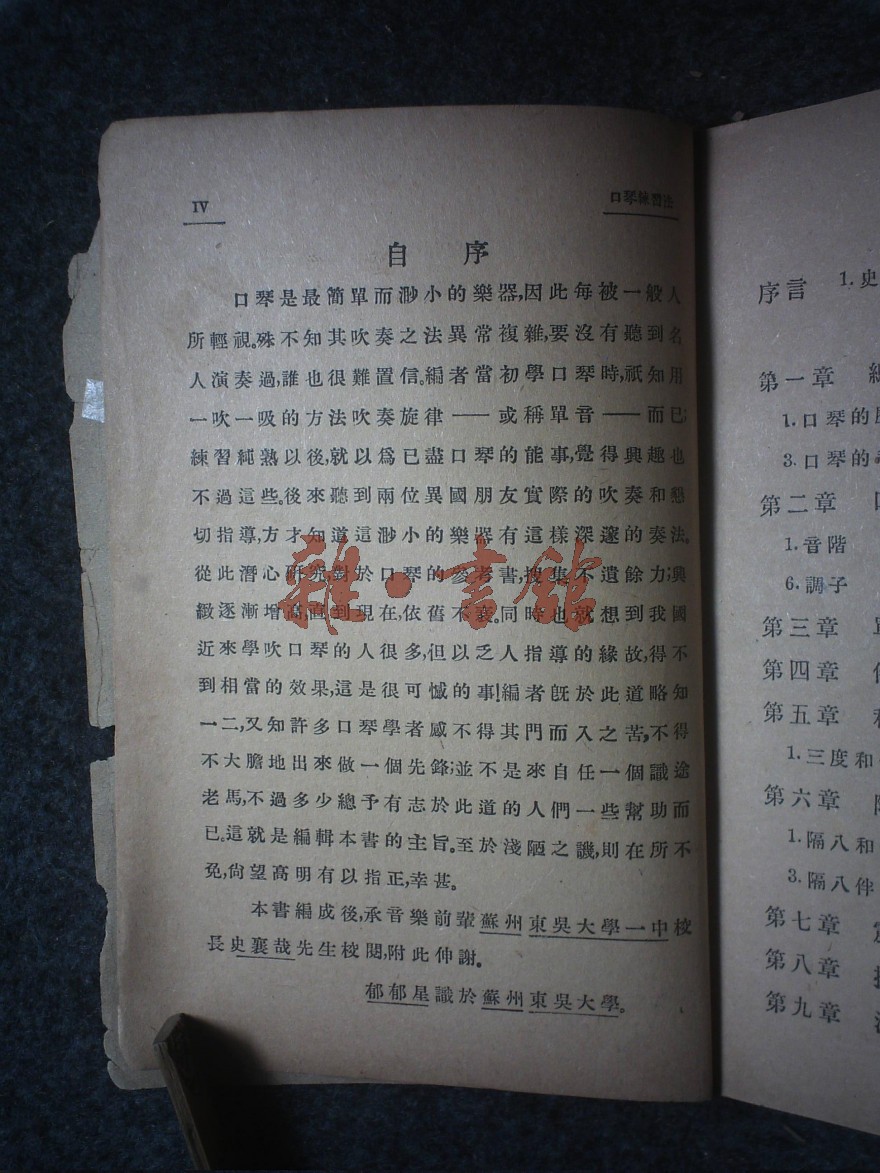 IV
口琴練習法
自序
口琴是最簡單而渺小的樂器,因此每被一般人
所輕視。殊不知其吹奏之法異常複雜,要沒有聽到名
人演奏過,誰也很難置信。編者當初學口琴時,祇知用
一吹一吸的方法吹奏旋律——或稱單音——而已;
練習純熟以後,就以爲已盡口琴的能事,覺得興趣也
不過這些。後來聽到兩位異國朋友實際的吹奏和懇
切指導,方才知道這渺小的樂器有這樣深邃的奏法。
從此潛心研究,對於口琴的參考書,搜集不遺餘力;興
緻逐漸增高,直到現在,依舊不衰。同時也就想到我國
近來學吹口琴的人很多,但以乏人指導的緣故,得不
到相當的效果,這是很可憾的事!編者旣於此道略知
一二,又知許多口琴學者感不得其門而入之苦,不得
不大膽地出來做一個先鋒;並不是來自任一個識途
老馬,不過多少總予有志於此道的人們一些幫助而
已。這就是編輯本書的主旨。至於淺陋之譏,則在所不
免,尙望高明有以指正,幸甚。
本書編成後,承音樂前輩蘇州東吳大學一中校
長史襄哉先生校閱,附此伸謝。
郁郁星識於蘇州東吳大學。
雜·書館
序言 1.史
第一章
1.口琴的
3.口琴的
第二章
1.音階
6.調子
第三章
第四章
第五章
1.三度和
第六章
1.隔八和
3.隔八伴
第七章
第八章
第九章